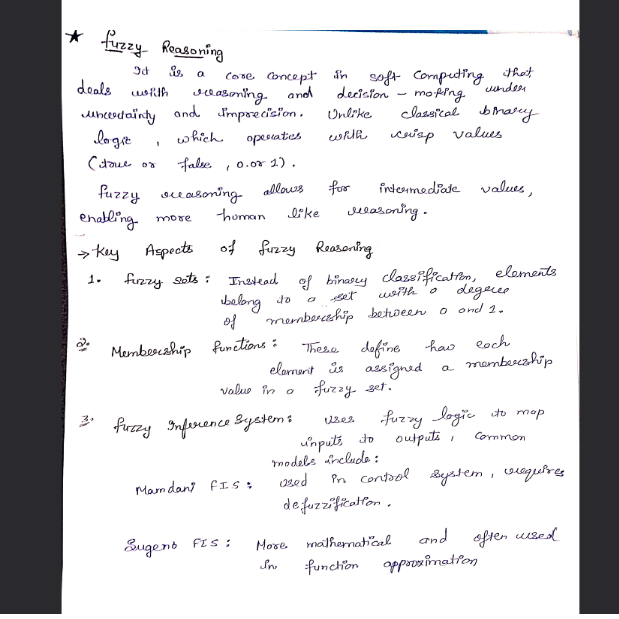 ★ fuzzy Reasoning
It is a core concept in soft computing that
deals with reasoning and decision - making under
uncertainty and imprecision. Unlike classical binary
logic , which operates with crisp values
(true or false , 0 or 1).
fuzzy reasoning allows for intermediate values,
enabling more human like reasoning.
→ Key Aspects of fuzzy Reasoning
1. fuzzy sets : Instead of binary classification, elements
belong to a set with a degree
of membership between 0 and 1.
2. Membership functions : These define how each
element is assigned a membership
value in a fuzzy set.
3. fuzzy Inference System : Uses fuzzy logic to map
inputs to outputs , common
models include :
Mamdani FIS : used in control system , requires
defuzzification .
Sugeno FIS : More mathematical and often used
in function approximation